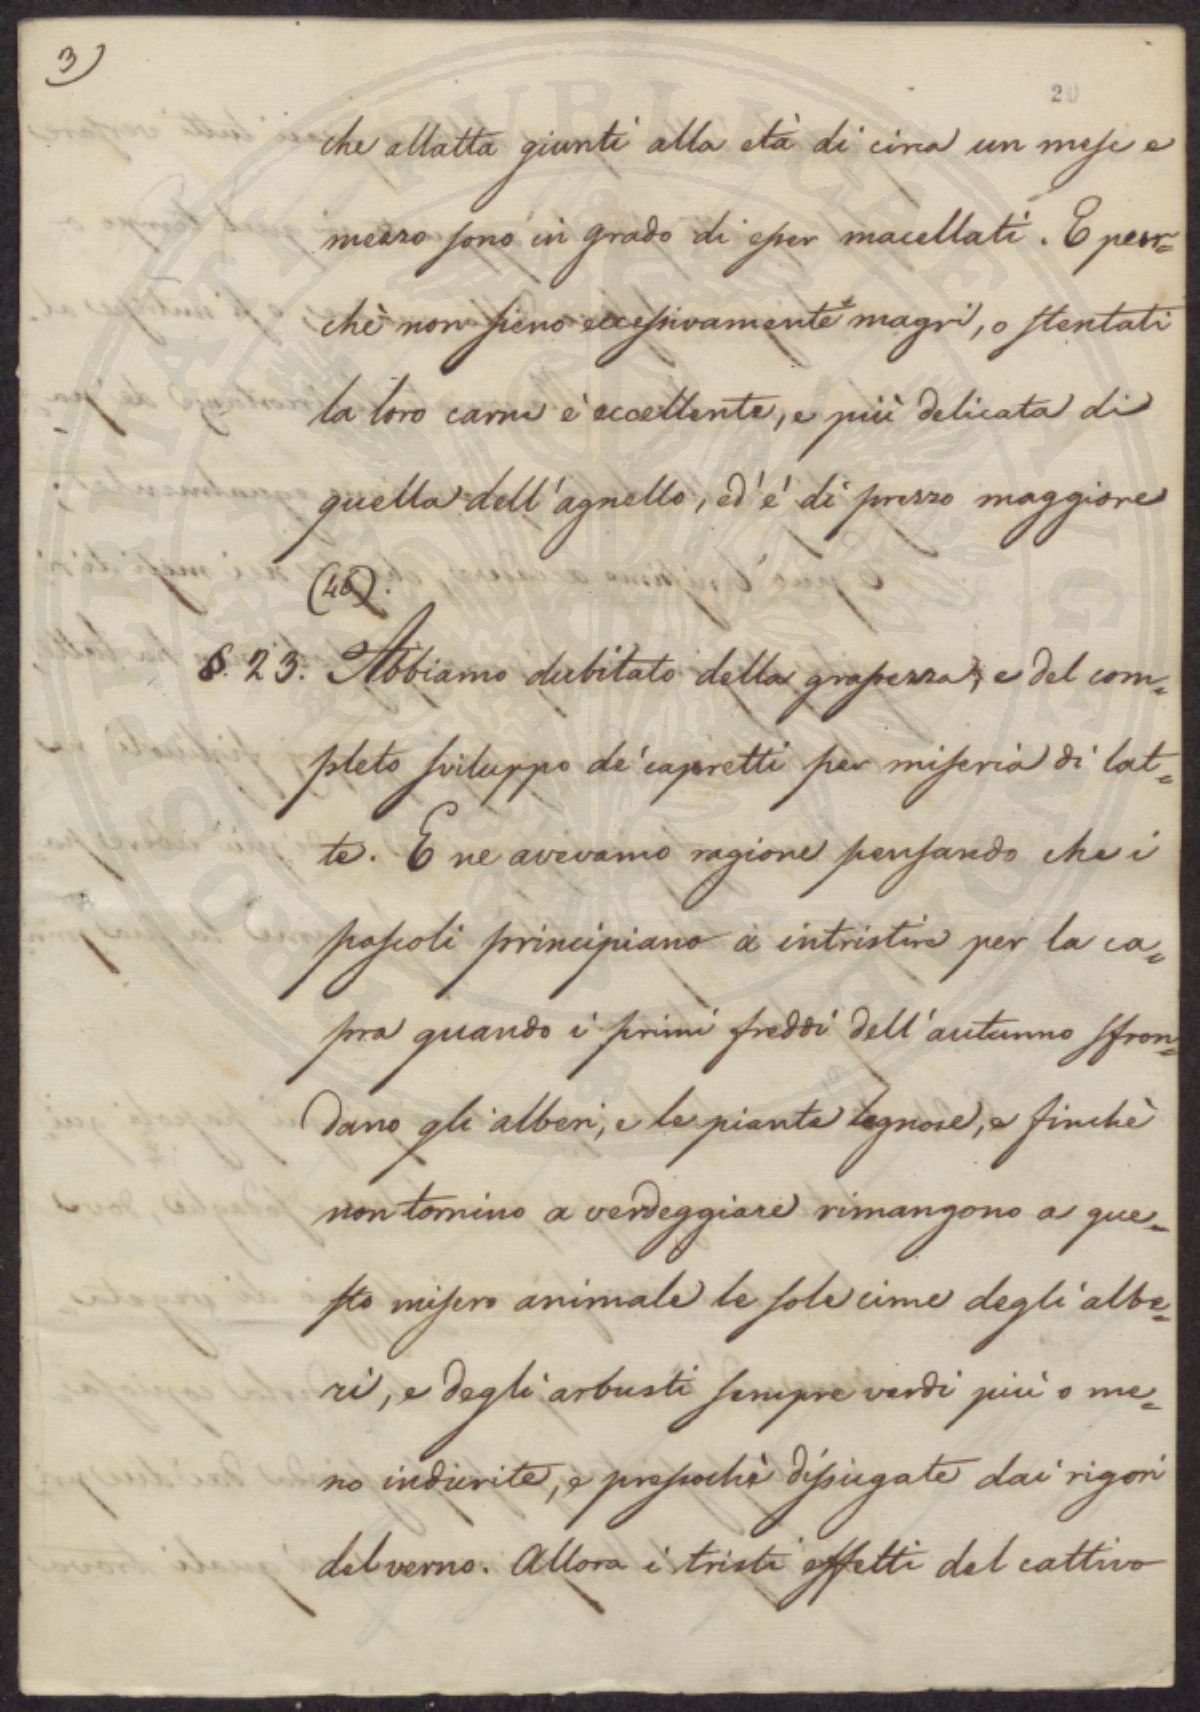 3)
20
che allatta giunti alla età di circa un mese e
mezzo sono in grado di esser macellati. E per=
chè non sieno eccessivamente magri, o stentati
la loro carne è eccellente, e più delicata di
quella dell'agnello, ed'è di prezzo maggiore
(46).
§. 23. Abbiamo dubitato della grassezza, e del com=
pleto sviluppo de' capretti per miseria di lat=
te. E ne avevamo ragione pensando che i
pascoli principiano a intristire per la ca=
pra quando i primi freddi dell'autunno sfron=
dano gli alberi, e le piante legnose, e finchè
non tornino a verdeggiare rimangono a que=
sto misero animale le sole cime degli albe=
ri, e degli arbusti sempre verdi più o me=
no indurite, e pressochè dissugate dai rigori
del verno. Allora i tristi effetti del cattivo